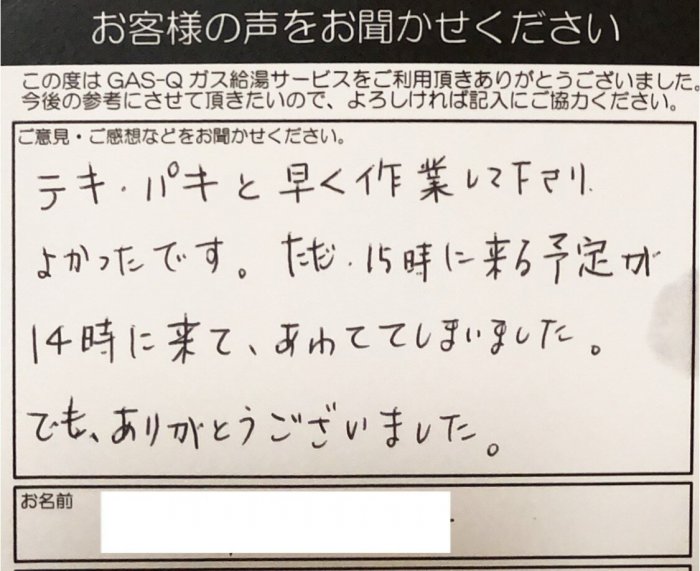 お客様の声をお聞かせください
この度はGAS-Qガス給湯サービスをご利用頂きありがとうございました。
今後の参考にさせて頂きたいので、よろしければ記入にご協力ください。
ご意見・ご感想などをお聞かせください。
テキ・パキと早く作業して下さり、
よかったです。ただ、15時に来る予定が
14時に来て、あわててしまいました。
でも、ありがとうございました。
お名前